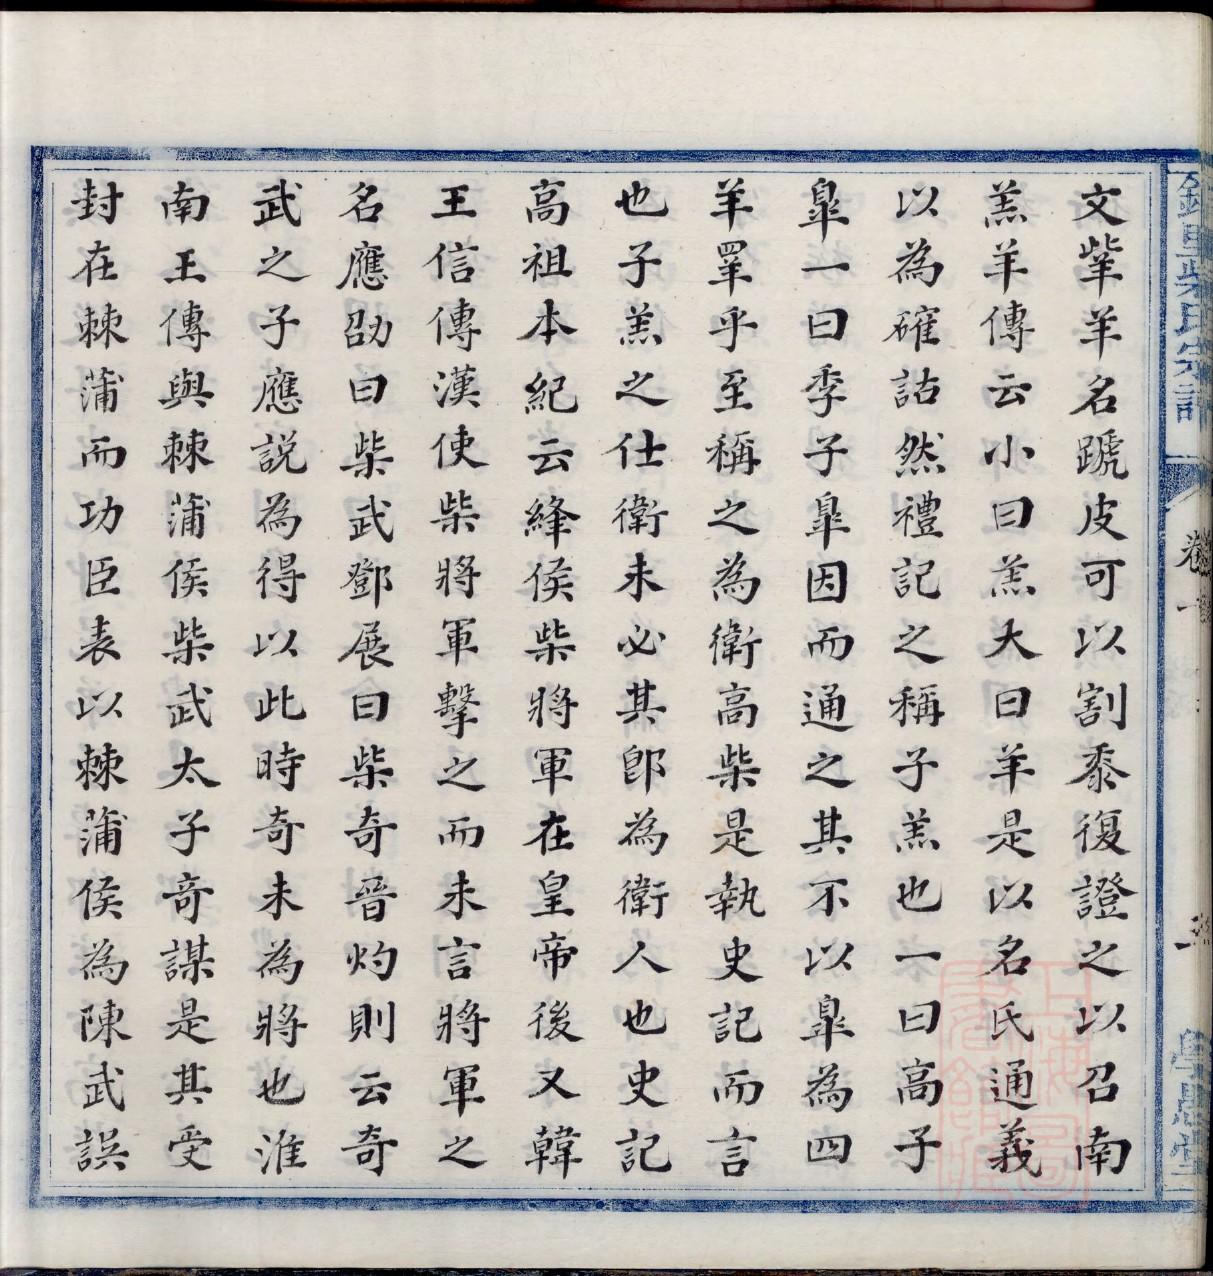 文羍羊名蹏皮可以割黍復證之以召南
羔羊傳云小曰羔大曰羊是以名氏通義
以為確詁然禮記之稱子羔也一曰高子
臯一曰季子臯因而通之其不以臯為四
羊睪乎至稱之為衛高柴是執史記而言
也子羔之仕衛未必其卽為衛人也史記
高祖本紀云絳侯柴將軍在皇帝後又韓
王信傳漢使柴將軍擊之而未言將軍之
名應劭曰柴武鄧展曰柴奇晉灼則云奇
武之子應説為得以此時奇未為將也淮
南王傳與棘蒲侯柴武太子奇謀是其受
封在棘蒲而功臣表以棘蒲侯為陳武誤
柴氏宗譜
卷